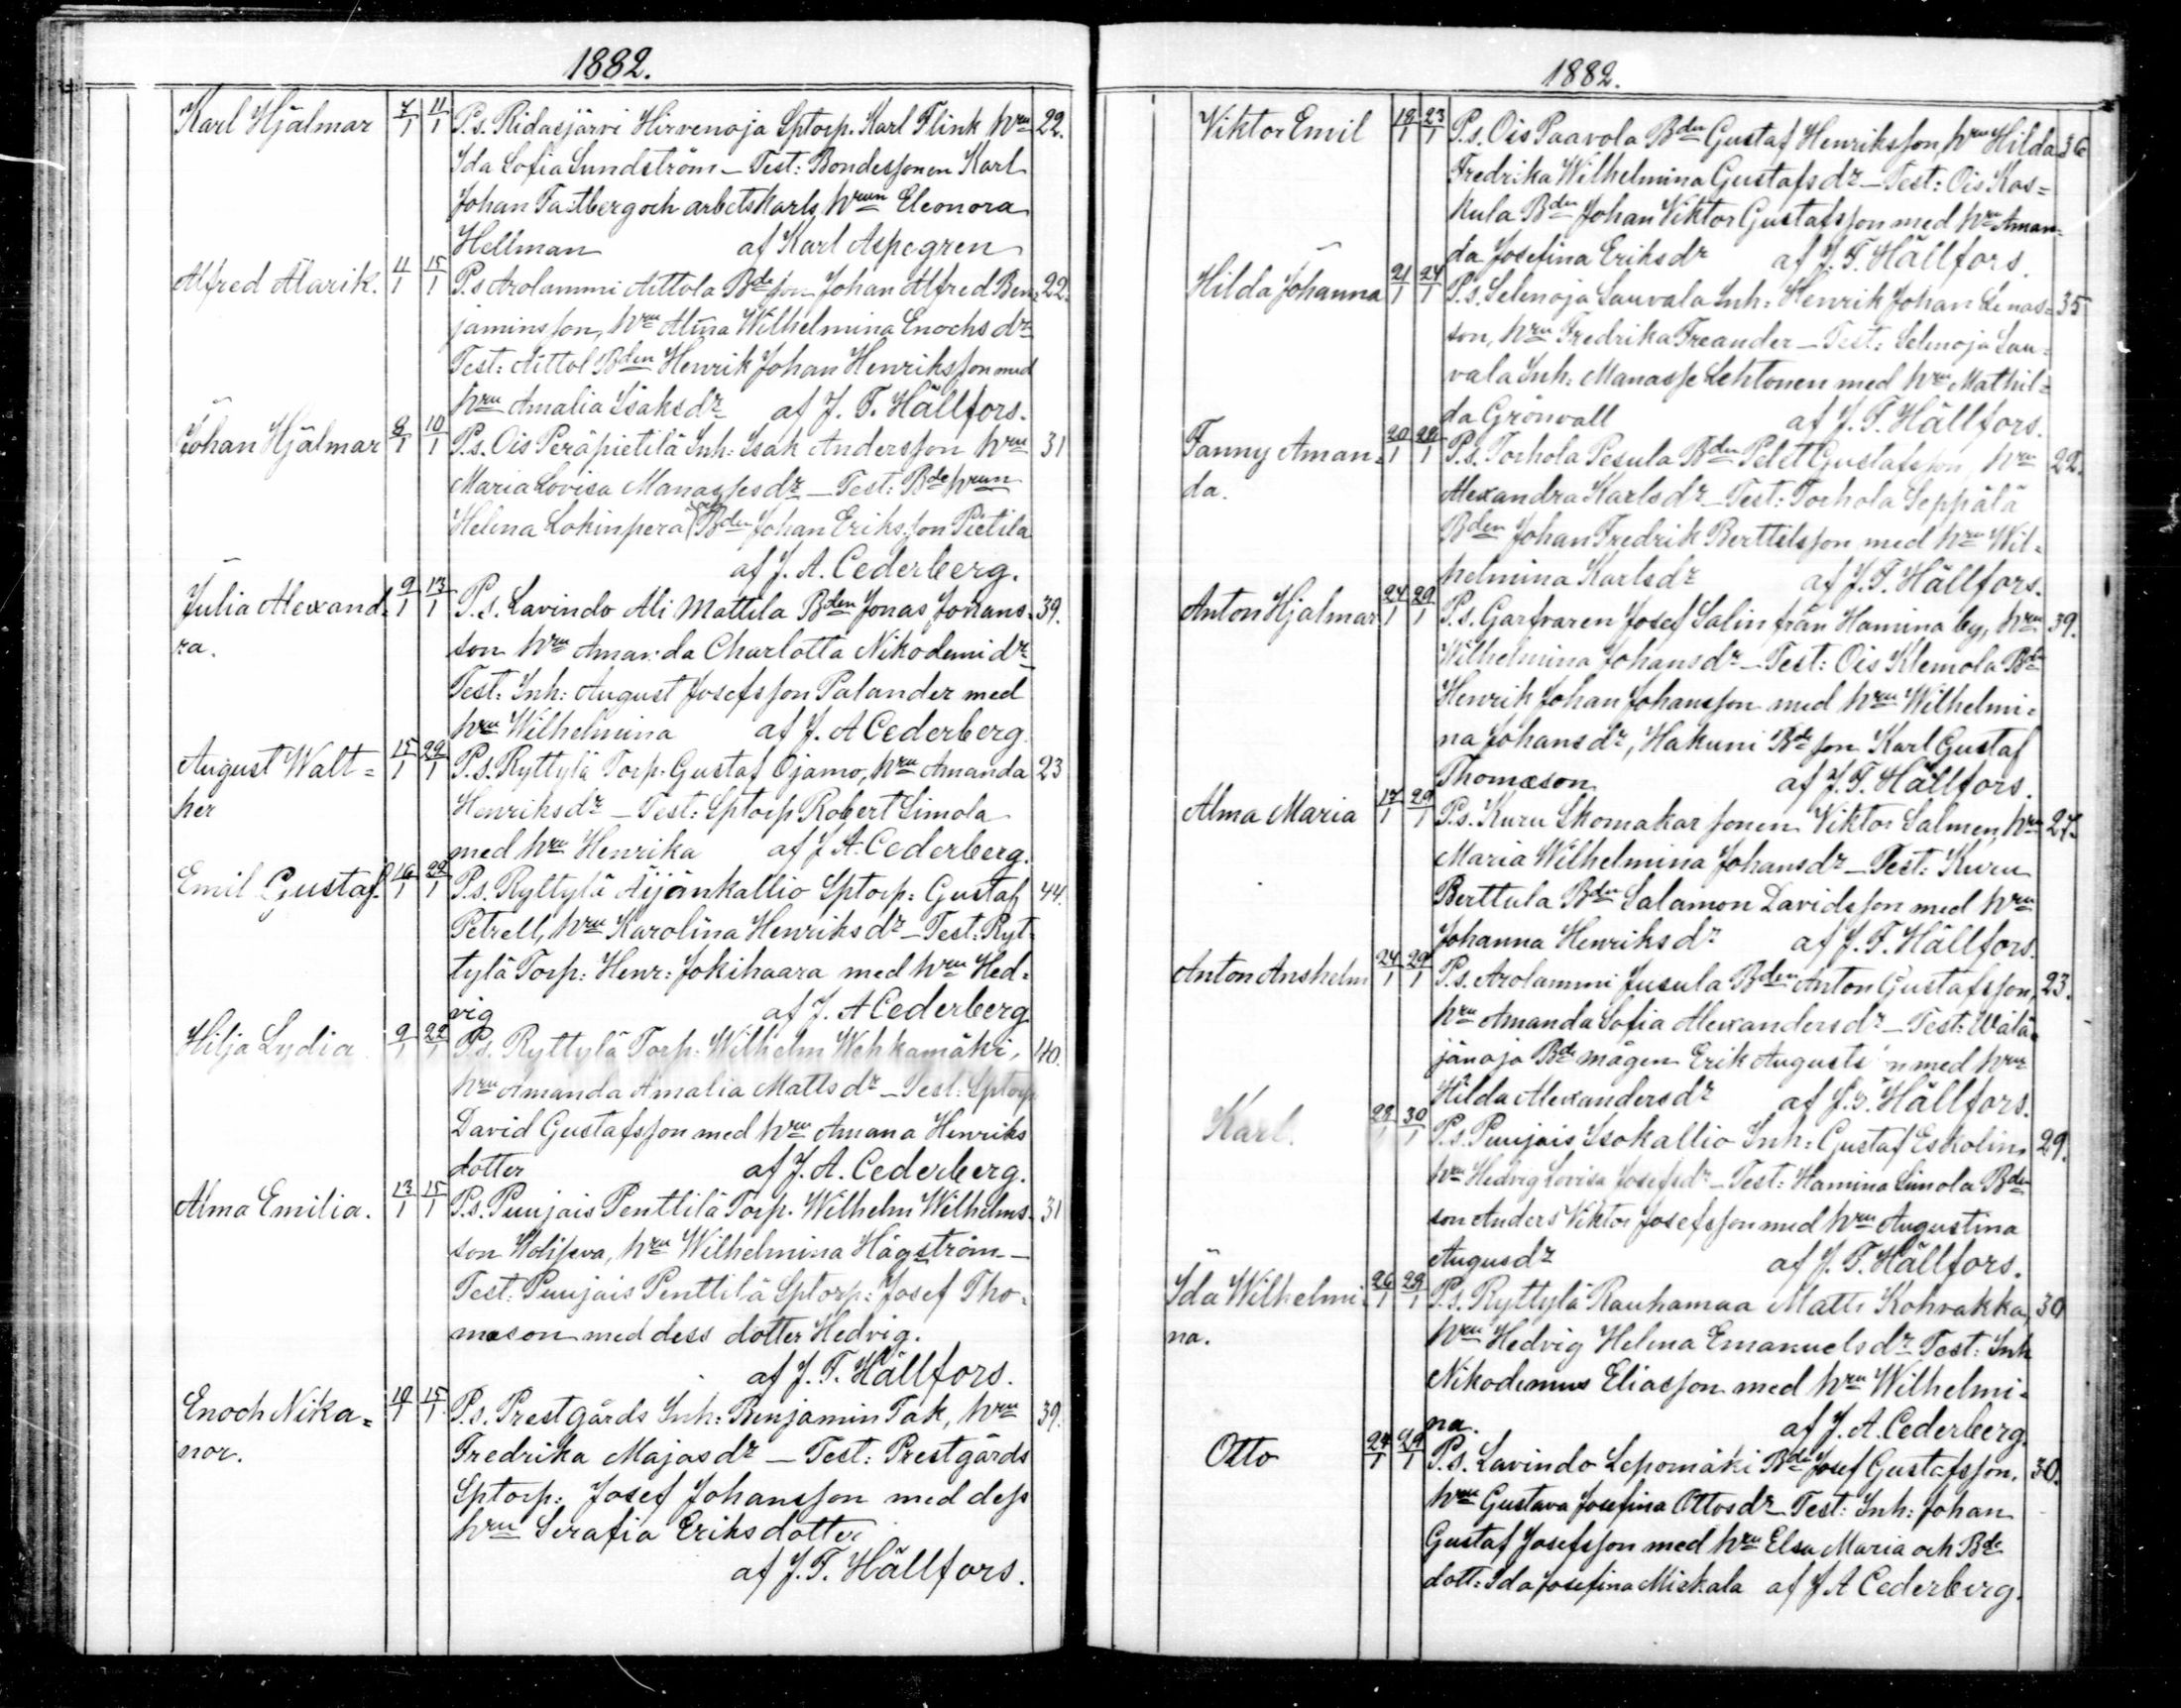 1882.
Karl Hjalmar 7/1 11/1 P.s. Ridasjärvi Hirvenoja Sptorp. Karl Flink hru 22.
Ida Sofia Sundström – Test: Bondessonen Karl
Johan Fastberg och arbetskarls hrun Eleonora
Hellman af Karl Aspegren
Alfred Alarik. 11/1 15/1 P.s Arolammi Aittola Bdeson Johan Alfred Ben= 22.
jaminsson, hru Alma Wilhelmina Enochsdr
Test: Aittol Bden Henrik Johan Henriksson med
hru Amalia Isaksdr af J. F. Hällfors.
Johan Hjalmar 8/1 10/1 P.s. Ois Peräpietilä Inh: Isak Andersson hru 31
Maria Lovisa Manassesdr – Test: Bdehrun
Helena Lokinperä och Bden Johan Eriksson Pietilä
af J. A. Cederberg.
Julia Alexand= 9/1 13/1 P.s. Lavindo Ali Mattila Bden Jonas Johans= 39.
ra. son hru Amanda Charlotta Nikodemidr
Test: Inh: August Josefsson Palander med
hru Wilhelmina af J. A Cederberg.
August Walt= 15/1 22/1 P.s. Ryttylä Torp. Gustaf Ojamo, hru Amanda 23
her Henriksdr – Test: Sptorp Robert Simola
med hru Henrika af J. A. Cederberg.
Emil Gustaf. 16/1 22/1 P.s. Ryttylä Äijänkallio Sptorp: Gustaf 44.
Petrell, hru Karolina Henriksdr – Test: Ryt=
tylä Torp: Henr: Jokihaara med hru Hed=
vig af J. A Cederberg
Hilja Lydia 9/1 22/1 P.s. Ryttylä Torp: Wilhelm Wehkamäki, 40.
hru Amanda Amalia Mattsdr – Test: Sptorp
David Gustafsson med hru Amana Henriks
dotter af J. A. Cederberg.
Alma Emilia. 13/1 15/1 P.s. Puujais Penttilä Torp. Wilhelm Wilhelms= 31
son, hru Wilhelmina Hägström –
Test: Puujais Penttilä Sptorp: Josef Tho=
masson med dess dotter Hedvig.
af J. F. Hällfors.
Enoch Nika= 10/1 15/1 P.s. Prestgårds Inh: Benjamin Tak, hru 39.
nor. Fredrika Majasdr – Test: Prestgårds
Sptorp: Josef Johansson med dess
hru Serafia Eriksdotter
af J. F. Hällfors.
1882.
Viktor Emil 18/1 23/1 P.s. Ois Paavola Bden Gustaf Henriksson, hru Hilda 36
Fredrika Wilhelmina Gustafsdr – Test: Ois Kos=
kula Bden Johan Viktor Gustafsson med hru Aman=
da Josefina Eriksdr af J. F. Hällfors.
Hilda Johanna 21/1 24/1 P.s. Selenoja Sauvala Inh: Henrik Johan Enas= 35
son, hru Fredrika Freander – Test: Selenoja Sau=
vala Inh: Manasse Lehtonen med hru Mathil=
da Grönvall af J. F. Hällfors.
Fanny Aman= 20/1 28/1 P.s. Torhola Pesula Bden Gustafsson, hru 22.
da. Alexandra Karlsdr – Test: Torhola Seppälä
Bden Johan Fredrik Berttilsson med hru Wil=
helmina Karlsdr af J. F. Hällfors.
Anton Hjalmar 24/1 29/1 P.s. Garfvaren Josef Salin från Hamina by, hru 39.
Wilhelmina Johansdr – Test: Ois Klemola Bden
Henrik Johan Johansson med hru Wilhelmi=
na Johansdr, Hakuni Bdeson Karl Gustaf
Thomasson af J. F. Hällfors.
Alma Maria 17/1 29/1 P.s. Kuru Skomakarsonen Viktor Salmen, hru 27.
Maria Wilhelmina Johansdr – Test: Kuru
Berttula Bden Salamon Davidsson med hru
Johanna Henriksdr af J. F. Hällfors.
Anton Anshelm 24/1 29/1 P.s. Arolammi Jusula Bden Anton Gustafsson, 23.
hru Amanda Sofia Alexandersdr – Test: Wälä=
jänoja Bde mågen Erik med hru
Hilda Alexandersdr af J. F. Hällfors.
Karl. 28/1 30/1 P.s. Puujais Isokallio Inh: Gustaf Eskolin, 29.
hru Hedvig Lovisa Josefsdr – Test: Hamina Simola Bde
son Anders Viktor Josefsson med hru Augustina
Augusdr af J. F. Hällfors.
Ida Wilhelmi= 26/1 29/1 P.s. Ryttylä Rauhamaa Matts Kohvakka, 30
na. hru Hedvig Helena Emanuelsdr Test: Inh
Nikodemus Eliasson med hru Wilhelmi=
na. af J. A. Cederberg.
Otto 24/1 29/1 P.s. Lavindo Lepomäki Bde Josef Gustafsson, 30.
hru Gustava Josefina Ottosdr – Test: Inh: Johan
Gustaf Josefsson med hru Elsa Maria och Bde
dott: Ida Josefina Miekala af J. A Cederberg.